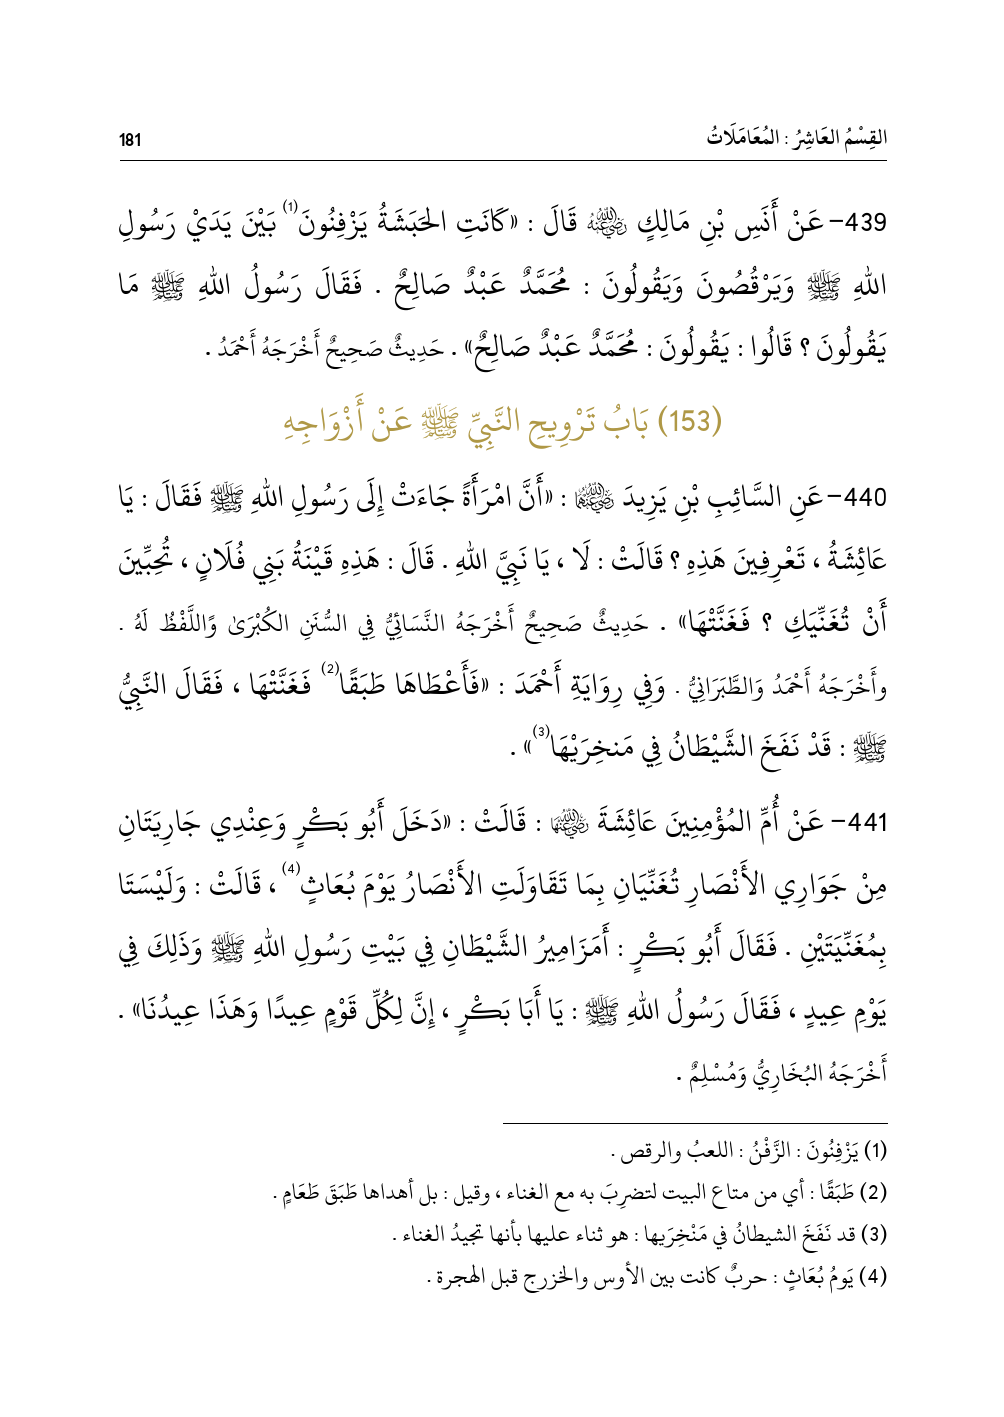 القِسْمُ العَاشِرُ : المُعَامَلَاتُ
181
439- عَنْ أَنَسِ بْنِ مَالِكٍ رَضِيَ اللهُ عَنْهُ قَالَ : «كَانَتِ الحَبَشَةُ يَزْفِنُونَ(1) بَيْنَ يَدَيْ رَسُولِ
اللهِ ﷺ وَيَرْقُصُونَ وَيَقُولُونَ : مُحَمَّدٌ عَبْدٌ صَالِحٌ . فَقَالَ رَسُولُ اللهِ ﷺ مَا
يَقُولُونَ ؟ قَالُوا : يَقُولُونَ : مُحَمَّدٌ عَبْدٌ صَالِحٌ» . حَدِيثٌ صَحِيحٌ أَخْرَجَهُ أَحْمَدُ .
(153) بَابُ تَرْوِيحِ النَّبِيِّ ﷺ عَنْ أَزْوَاجِهِ
440- عَنِ السَّائِبِ بْنِ يَزِيدَ رَضِيَ اللهُ عَنْهُمَا : «أَنَّ امْرَأَةً جَاءَتْ إِلَى رَسُولِ اللهِ ﷺ فَقَالَ : يَا
عَائِشَةُ ، تَعْرِفِينَ هَذِهِ ؟ قَالَتْ : لَا ، يَا نَبِيَّ اللهِ . قَالَ : هَذِهِ قَيْنَةُ بَنِي فُلَانٍ ، تُحِبِّينَ
أَنْ تُغَنِّيَكِ ؟ فَغَنَّتْهَا» . حَدِيثٌ صَحِيحٌ أَخْرَجَهُ النَّسَائِيُّ فِي السُّنَنِ الكُبْرَىٰ وًاللَّفْظُ لَهُ .
وأَخْرَجَهُ أَحْمَدُ وَالطَّبَرَانِيُّ . وَفِي رِوَايَةِ أَحْمَدَ : «فَأَعْطَاهَا طَبَقًا(2) فَغَنَّتْهَا ، فَقَالَ النَّبِيُّ
ﷺ : قَدْ نَفَخَ الشَّيْطَانُ فِي مَنخِرَيْهَا(3)» .
441- عَنْ أُمِّ المُؤْمِنِينَ عَائِشَةَ رَضِيَ اللهُ عَنْهَا : قَالَتْ : «دَخَلَ أَبُو بَكْرٍ وَعِنْدِي جَارِيَتَانِ
مِنْ جَوَارِي الأَنْصَارِ تُغَنِّيَانِ بِمَا تَقَاوَلَتِ الأَنْصَارُ يَوْمَ بُعَاثٍ(4) ، قَالَتْ : وَلَيْسَتَا
بِمُغَنِّيَتَيْنِ . فَقَالَ أَبُو بَكْرٍ : أَمَزَامِيرُ الشَّيْطَانِ فِي بَيْتِ رَسُولِ اللهِ ﷺ وَذَلِكَ فِي
يَوْمِ عِيدٍ ، فَقَالَ رَسُولُ اللهِ ﷺ : يَا أَبَا بَكْرٍ ، إِنَّ لِكُلِّ قَوْمٍ عِيدًا وَهَذَا عِيدُنَا» .
أَخْرَجَهُ البُخَارِيُّ وَمُسْلِمٌ .
(1) يَزْفِنُونَ : الزَّفْنُ : اللعبُ والرقص .
(2) طَبَقًا : أي من متاع البيت لتضرِبَ به مع الغناء ، وقيل : بل أهداها طَبَقَ طَعَامٍ .
(3) قد نَفَخَ الشيطانُ في مَنْخِرَيها : هو ثناء عليها بأنها تجيدُ الغناء .
(4) يَومُ بُعَاثٍ : حربٌ كانت بين الأوس والخزرج قبل الهجرة .